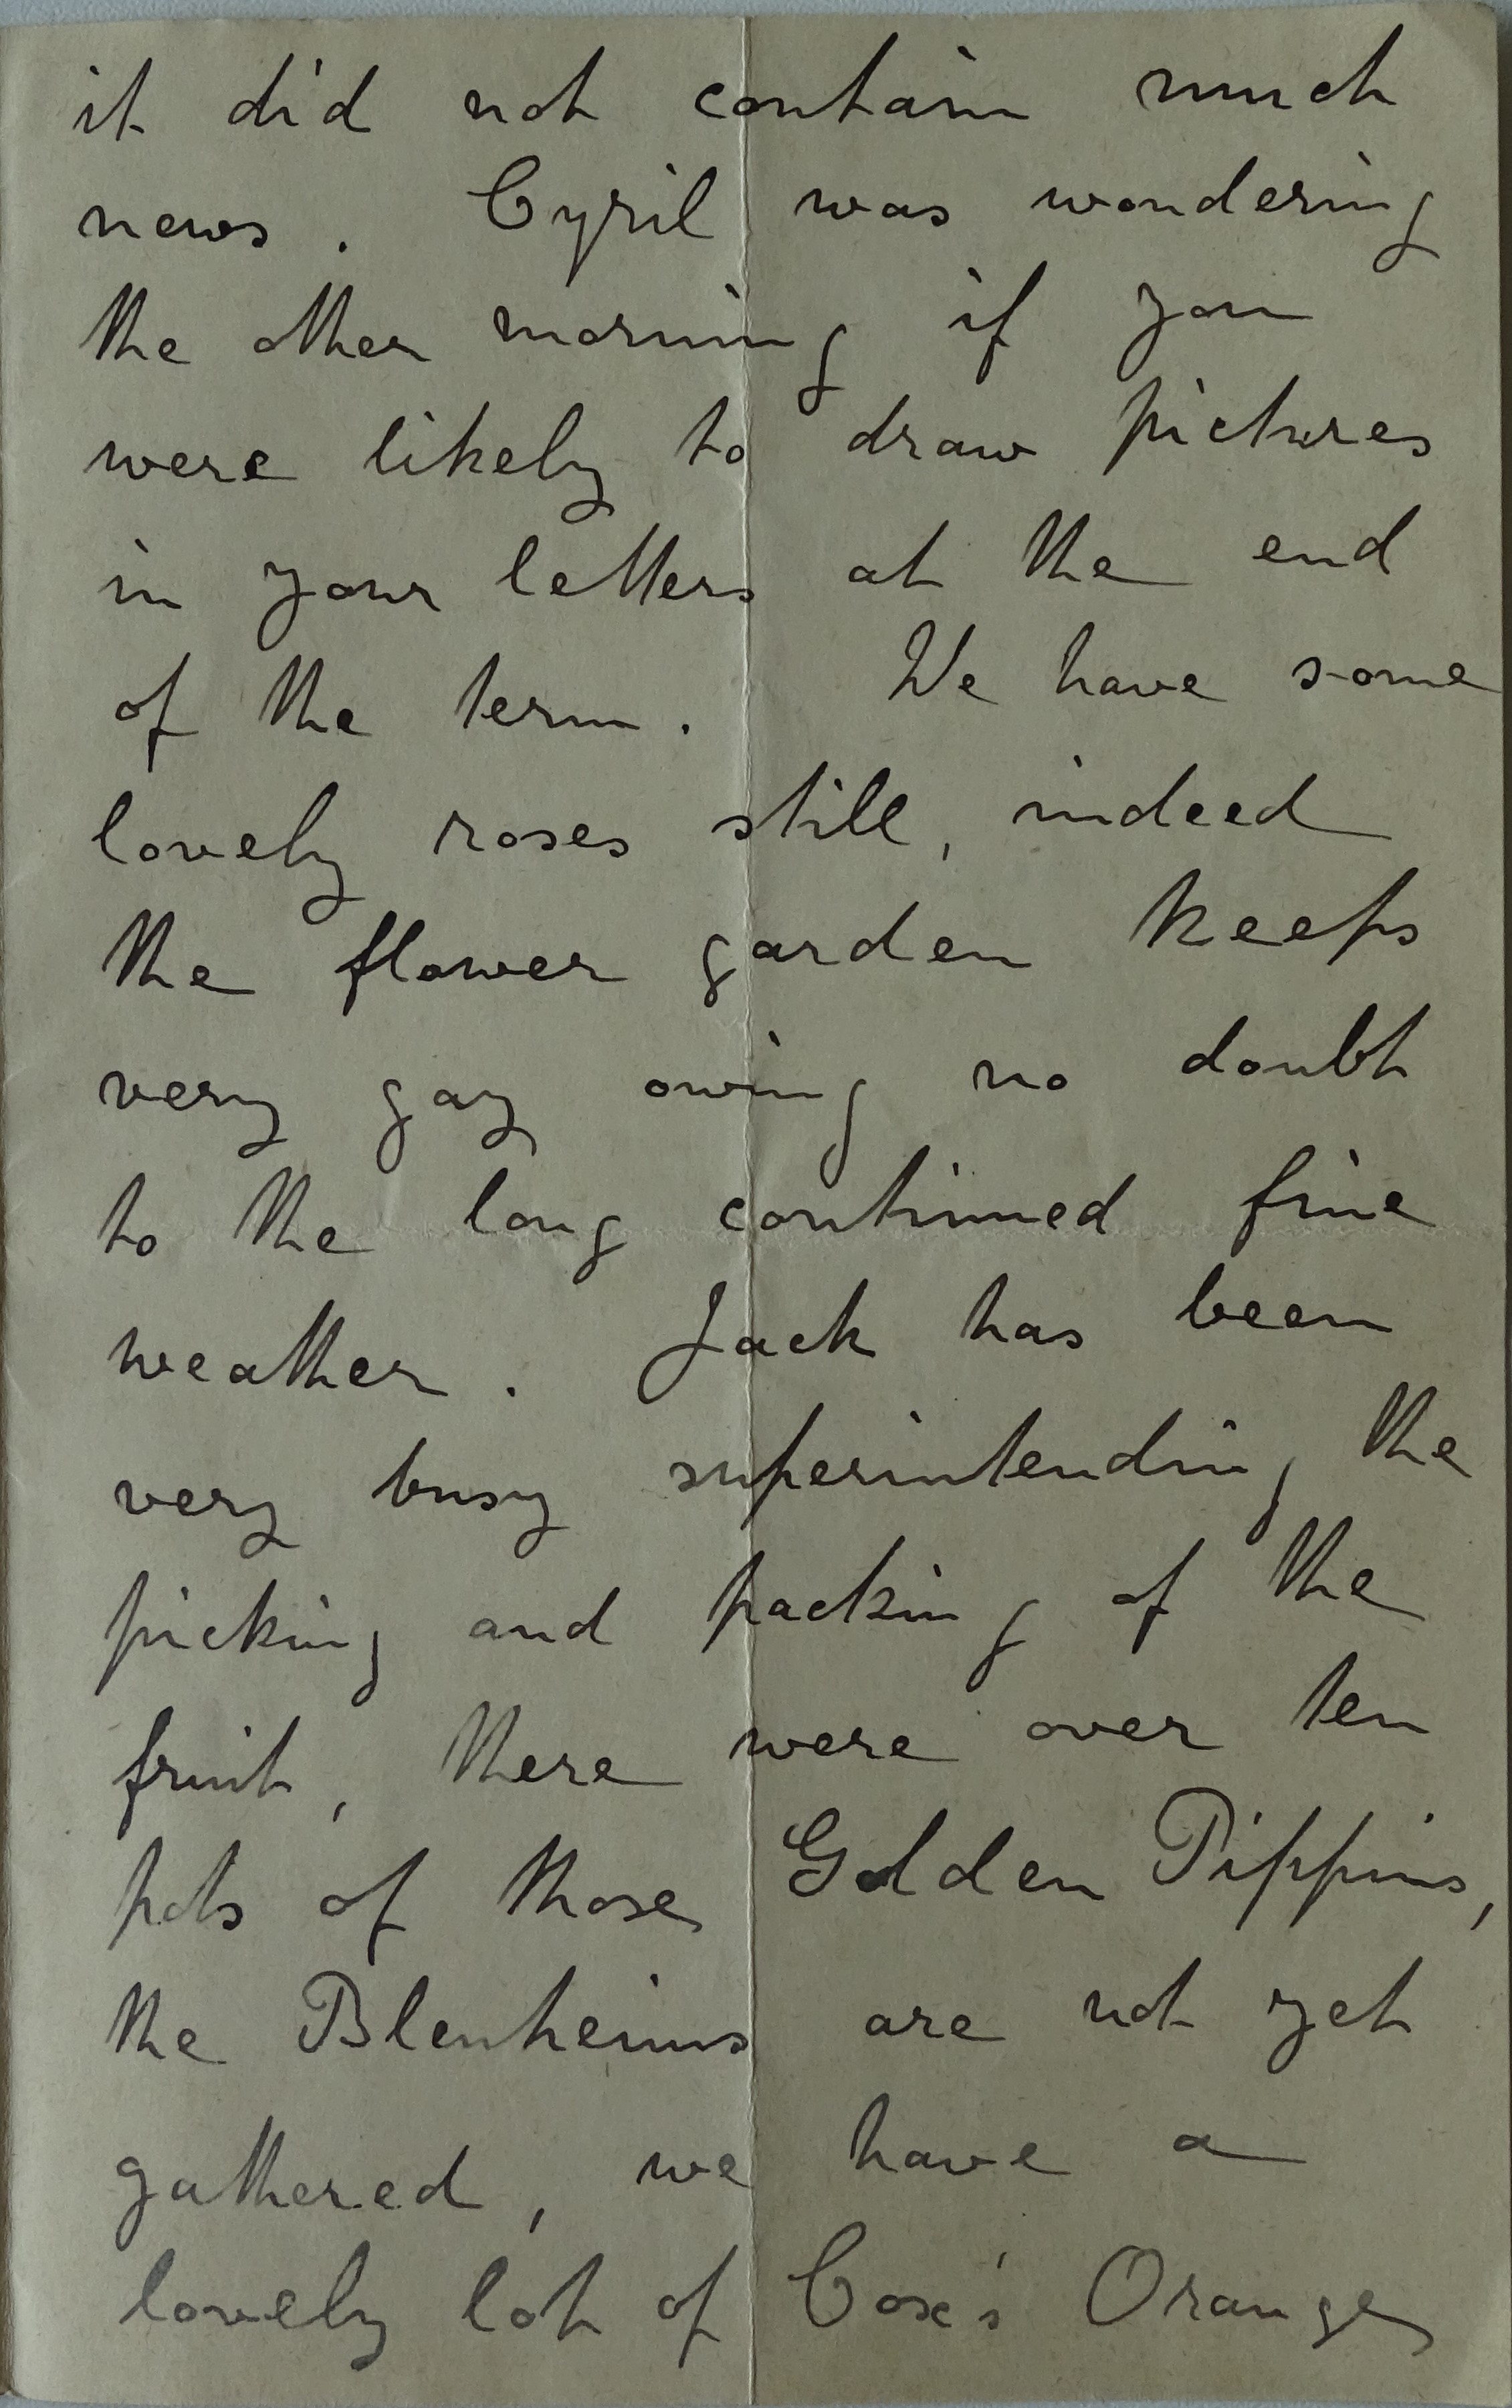 it did not contain much
news. Cyril was wondering
the other morning if you
were likely to draw pictures
in your letters at the end
of the term. We have some
lovely roses still, indeed
the flower garden keeps
very gay owing no doubt
to the long continued fine
weather. Jack has been
very busy superintending the
picking and packing of the
fruit, there were over ten
pots of those Golden Pippins,
the Blenheims are not yet
gathered, we have a
lovely lot of Cox's Orange